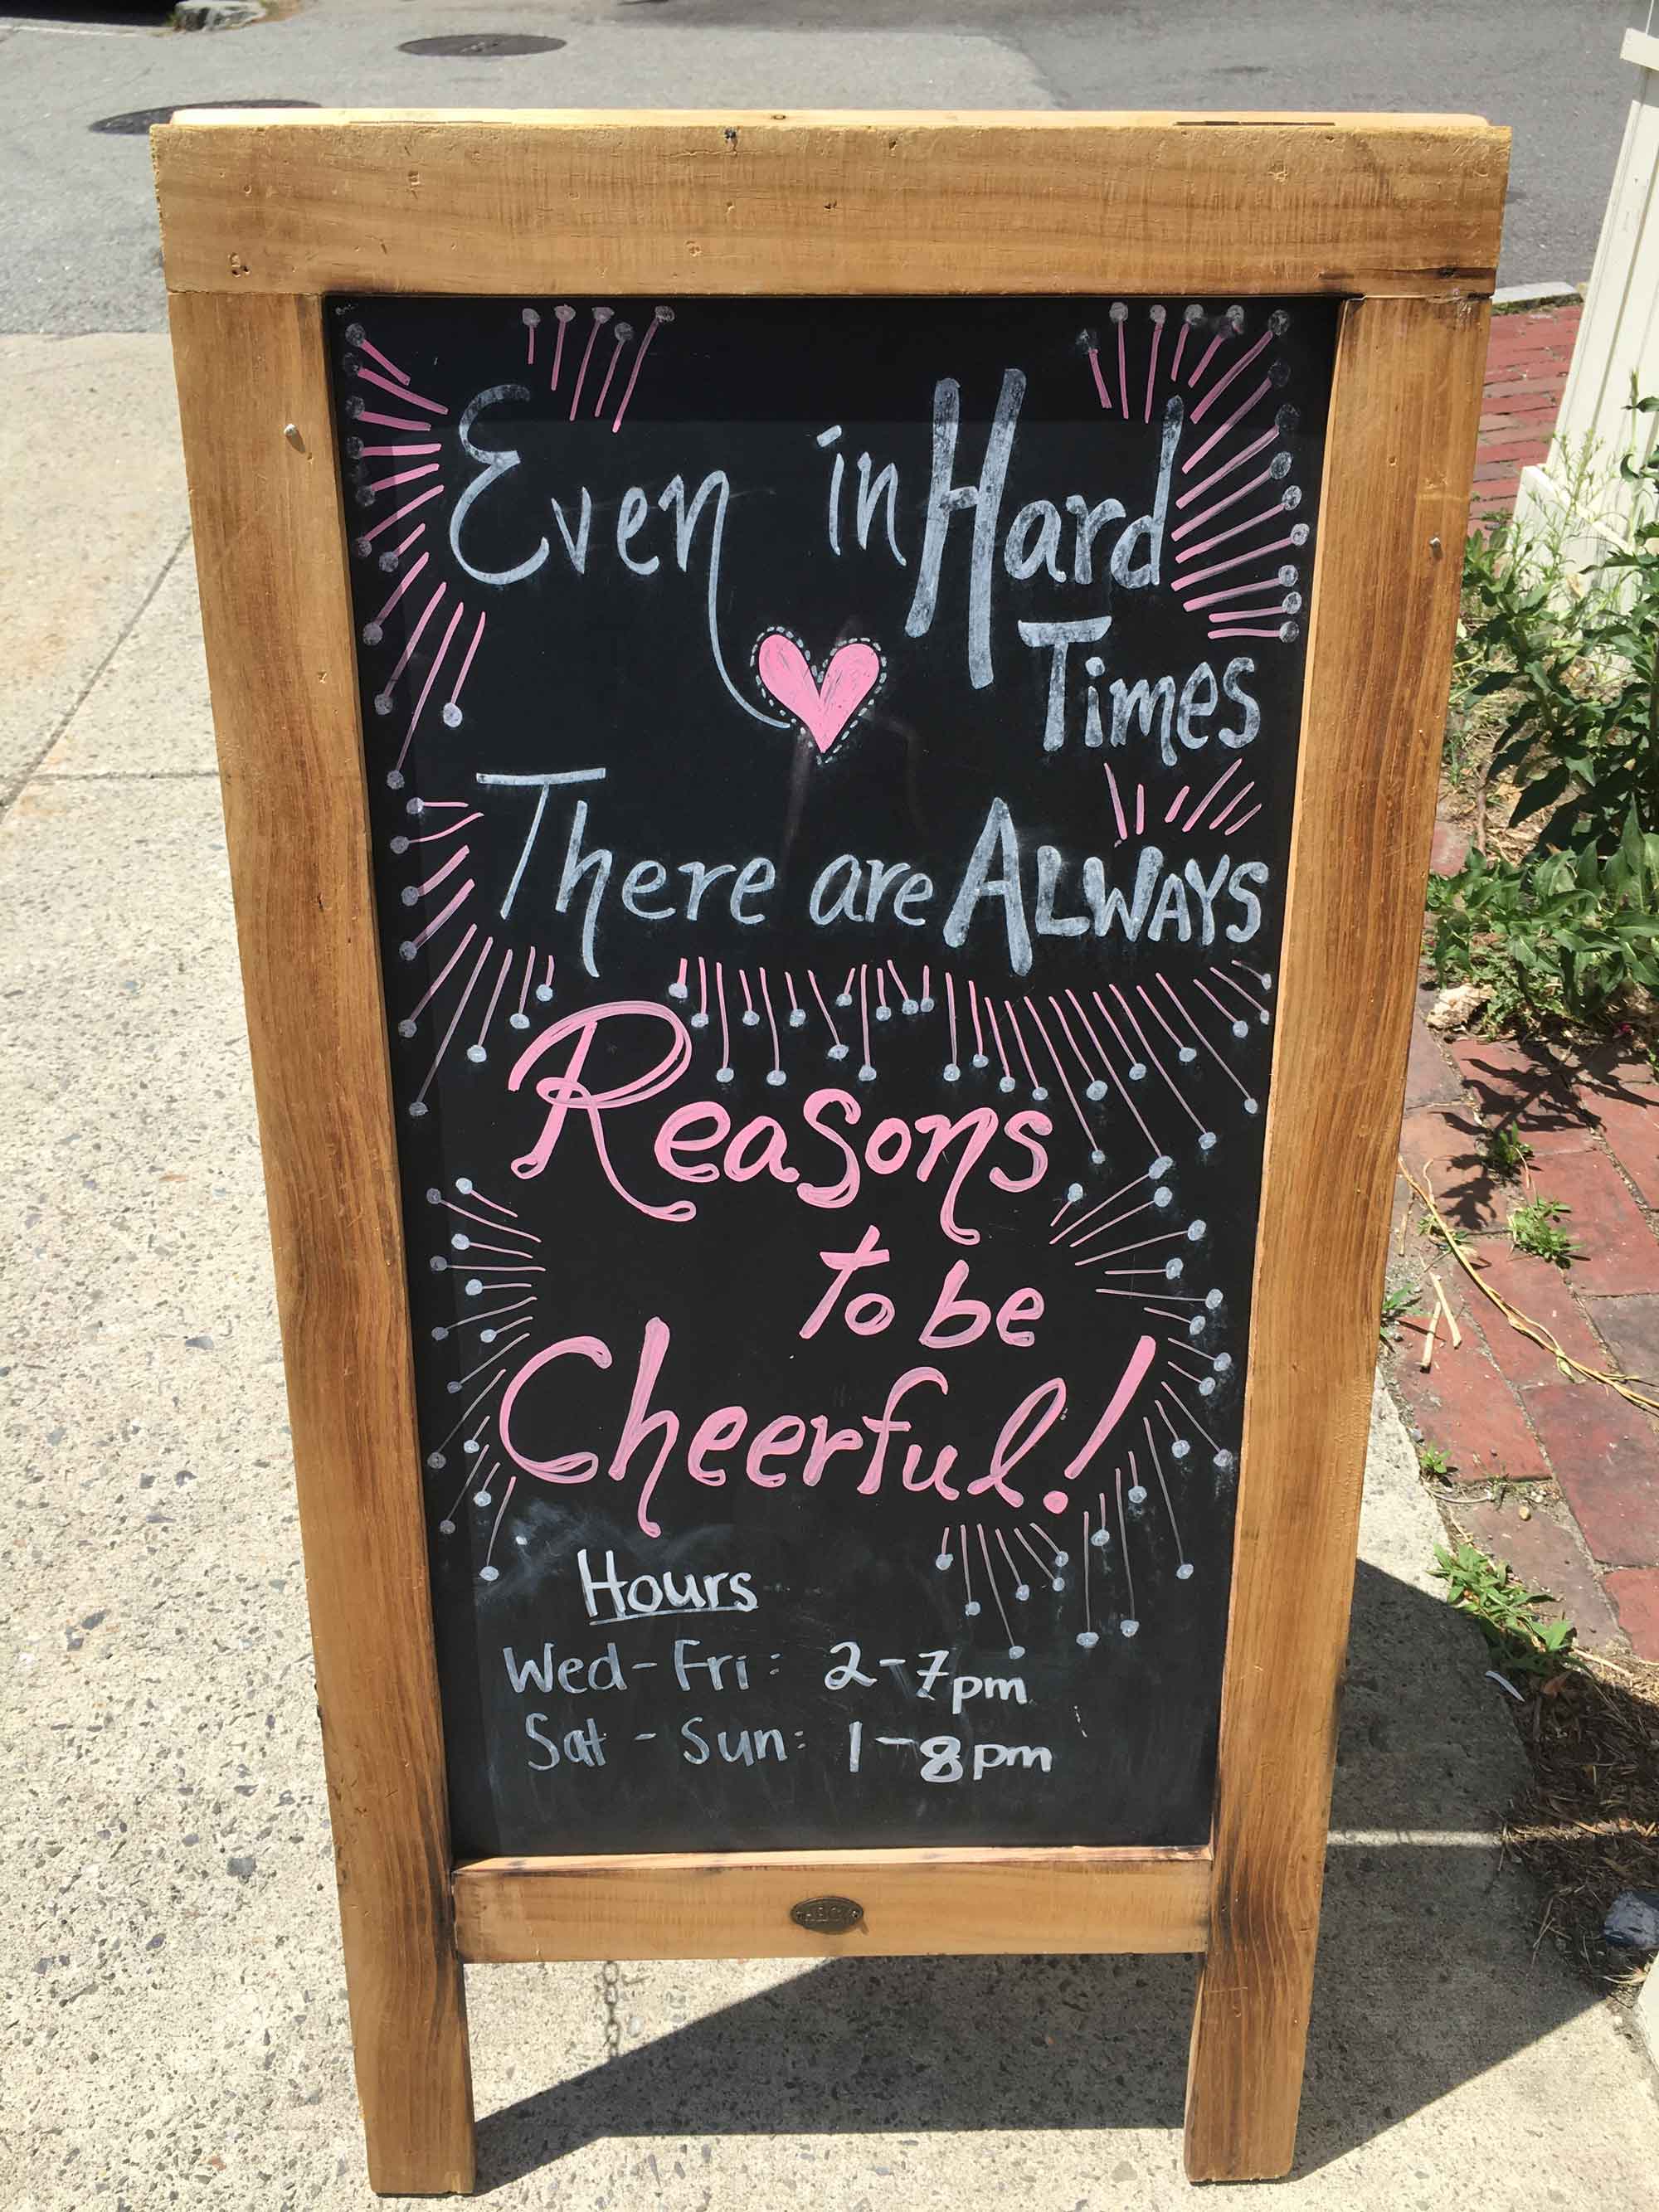 Even in Hard
Times
There are ALWAYS
Reasons
to be
Cheerful!
Hours
Wed-Fri: 2-7pm
Sat - Sun: 1-8pm